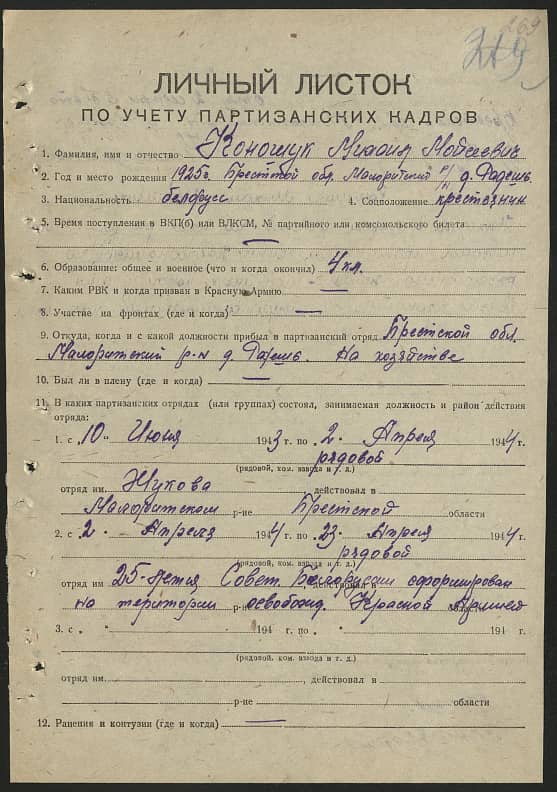 269
ЛИЧНЫЙ ЛИСТОК
ПО УЧЕТУ ПАРТИЗАНСКИХ КАДРОВ
1. Фамилия, имя и отчество Коношук Михаил Мойсеевич
2. Год и место рождения 1925г. Брестской обл. Малоритский р/н д.
3. Национальность белорусс 4. Соцположение крестеянин
5. Время поступления в ВКП(б) или ВЛКСМ, № партийного или комсомольского билета
—
6. Образование: общее и военное (что и когда окончил) 4 кл.
7. Каким РВК и когда призван в Красную Армию —
8. Участие на фронтах (где и когда) —
9. Откуда, когда и с какой должности прибыл в партизанский отряд Брестской обл.
Малоритский р-н д. На хозяйстве
10. Был ли в плену (где и когда) —
11. В каких партизанских отрядах (или группах) состоял, занимаемая должность и район действия
отряда:
1. с „10" Июня 1943 г. по „2" Апреля 1944 г.
рядовой
(рядовой, ком. взвода и т. д.)
отряд им. Жукова действовал в
Малоритском р-не Брестской области
2. с „2" Апреля 1944 г. по „23" Апреля 1944 г.
рядовой
(рядовой, ком. взвода и т. д.)
отряд им 25-летия Совет. Белоруссии действовал в сформирован
на територии р-не освобожд. Красной Армией области
3. с „ " 194 г. по „ " 194 г.
(рядовой, ком. взвода и т. д.)
отряд им. , действовал в
р-не области
12. Ранения и контузии (где и когда) —